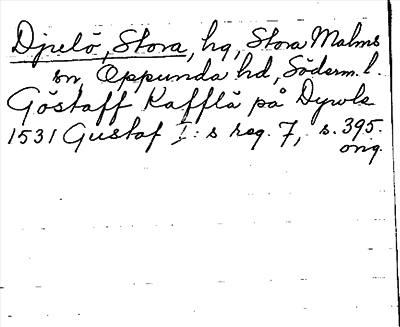 Djulö, Stora, hg, Stora Malms
sn, Oppunda hd, Söderm. l.
Göstaff Kafflä på Dywle
1531 Gustaf I:s reg. 7, s. 395.
orig.